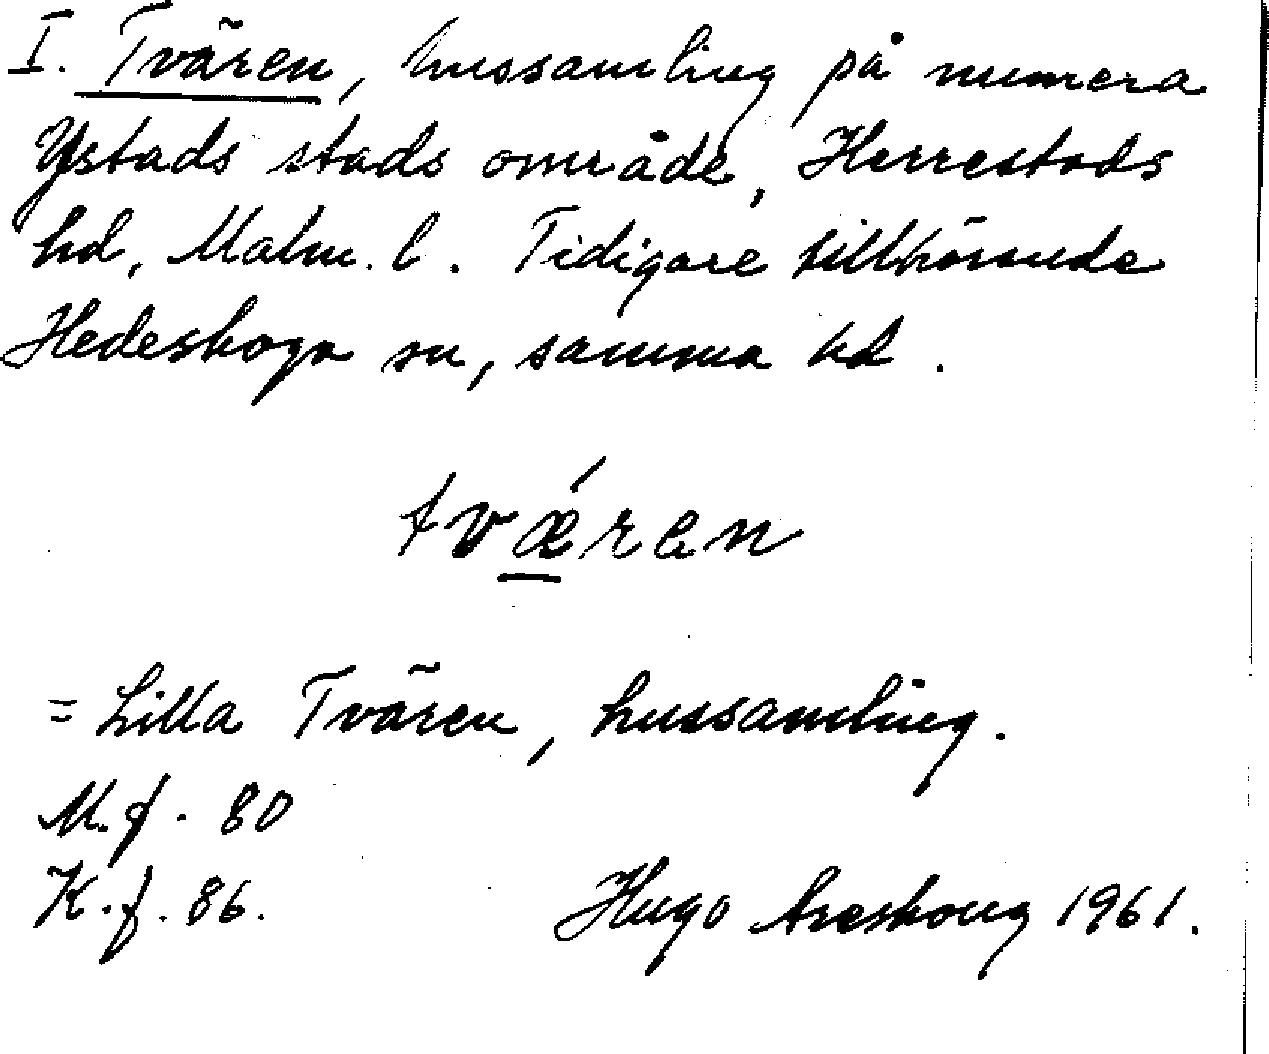 I. Tvären, hussamling på numera
Ystads stads område, Herrestads
hd, Malm. l. Tidigare tillhörande
Hedeskoga sn, samma hd.
tvǽren
= Lilla Tvären, hussamling.
M.f. 80
K.f. 86.
Hugo Areskoug 1961.